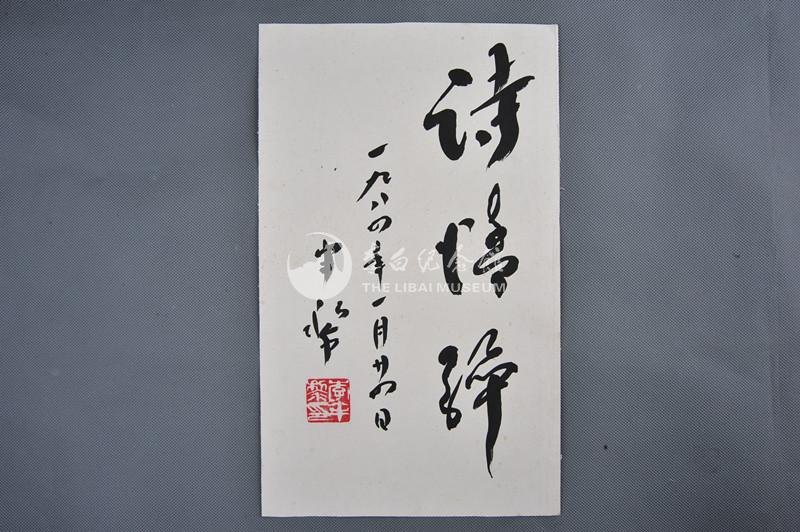 诗情
一九八四年一月廿四日
半黎
李半黎印
李白纪念馆
THE LIBAI MUSEUM